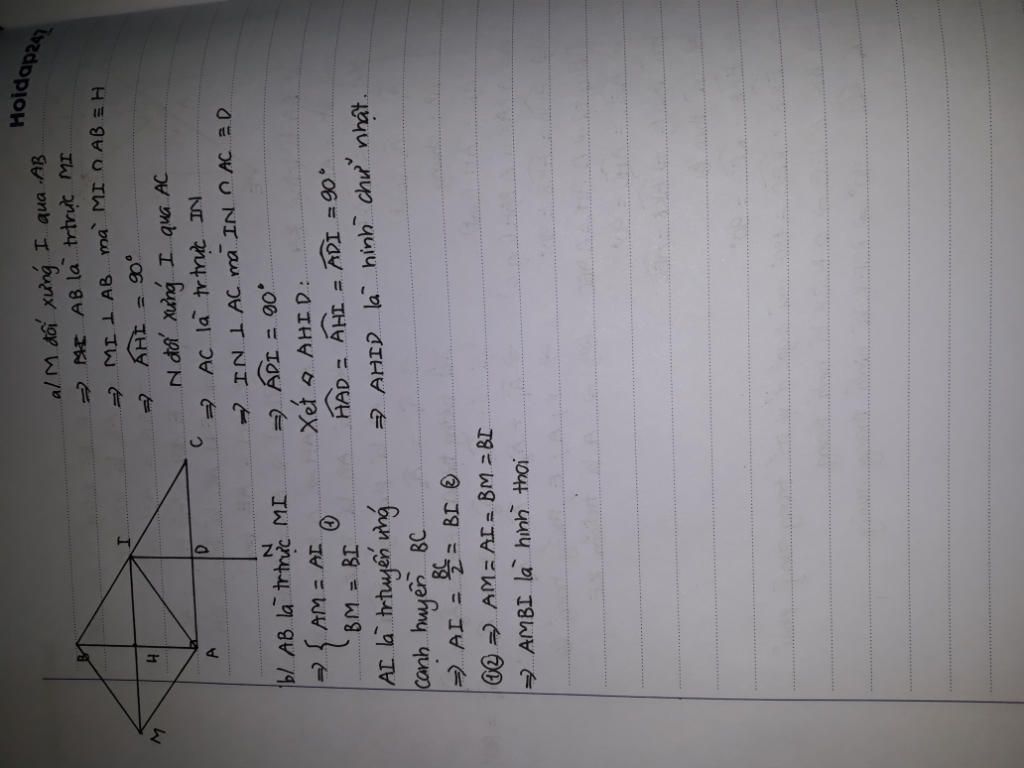 Hoidap247
B
I
M
H
A
D
C
N
a/ M đối xứng I qua AB
⇒ AB là trtrực MI
⇒ MI ⊥ AB mà MI ∩ AB ≡ H
⇒ AHI = 90°
N đối xứng I qua AC
⇒ AC là trtrực IN
⇒ IN ⊥ AC mà IN ∩ AC ≡ D
⇒ ADI = 90°
Xét ◇ AHID:
HAD = AHI = ADI = 90°
⇒ AHID là hình chữ nhật.
b/ AB là trtrực MI
⇒ { AM = AI ①
BM = BI
AI là trtuyến ứng
cạnh huyền BC
⇒ AI = BC/2 = BI ②
①② ⇒ AM = AI = BM = BI
⇒ AMBI là hình thoi